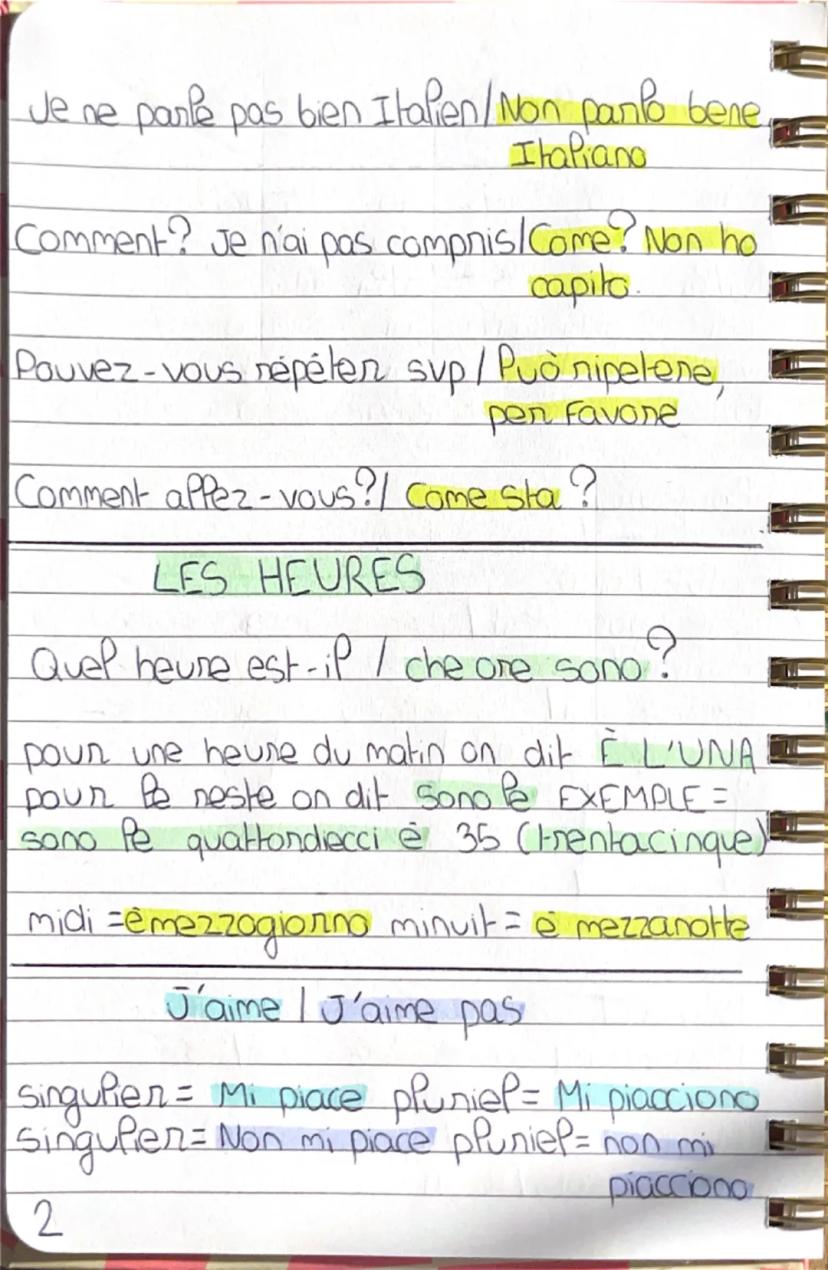 Je ne parle pas bien Italien/Non parlo bene
Italiano
Comment? Je n'ai pas compris/Come? Non ho
capito.
Pouvez-vous répéter svp / Può ripetere,
per favore
Comment allez-vous?/ Come sta ?
LES HEURES
Quel heure est-il / che ore sono?
pour une heure du matin on dit È L'UNA
pour le reste on dit sono le EXEMPLE =
sono le quattordiecci è 35 (trentacinque)
midi = è mezzogiorno minuit = è mezzanotte
J'aime / J'aime pas
singulier = Mi piace pluriel = Mi piacciono
singulier = Non mi piace pluriel = non mi
piacciono
2